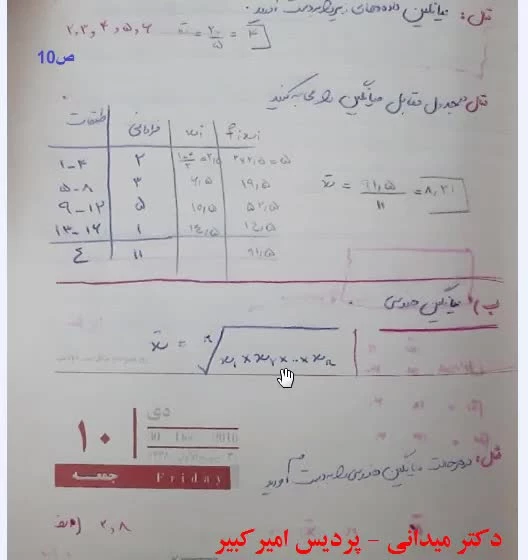 مثال: میانگین داده‌های زیر را بدست آورید.
۲,۳,۴,۵,۶ x̄ = ۲۰/۵ = ۴
ص10
مثال: جدول مقابل میانگین را محاسبه کنید
طبقات فراوانی xi fixi
۱-۴ ۲ ۲×۲,۵=۵
۵-۸ ۳ ۶,۵ ۱۹,۵
۹-۱۲ ۵ ۱۰,۵ ۵۲,۵
۱۳-۱۶ ۱ ۱۴,۵ ۱۴,۵
۱۱ ۹۱,۵
x̄ = ۹۱,۵/۱۱ = ۸,۳۱
ب) میانگین هندسی
x̄ = ⁿ√x₁ × x₂ × ... × xₙ
دی
۱۰
30 Dec 2016
جمعه Friday
مثال: در هر حالت میانگین هندسی را بدست آورید
الف) ۲,۸
دکتر میدانی - پردیس امیر کبیر